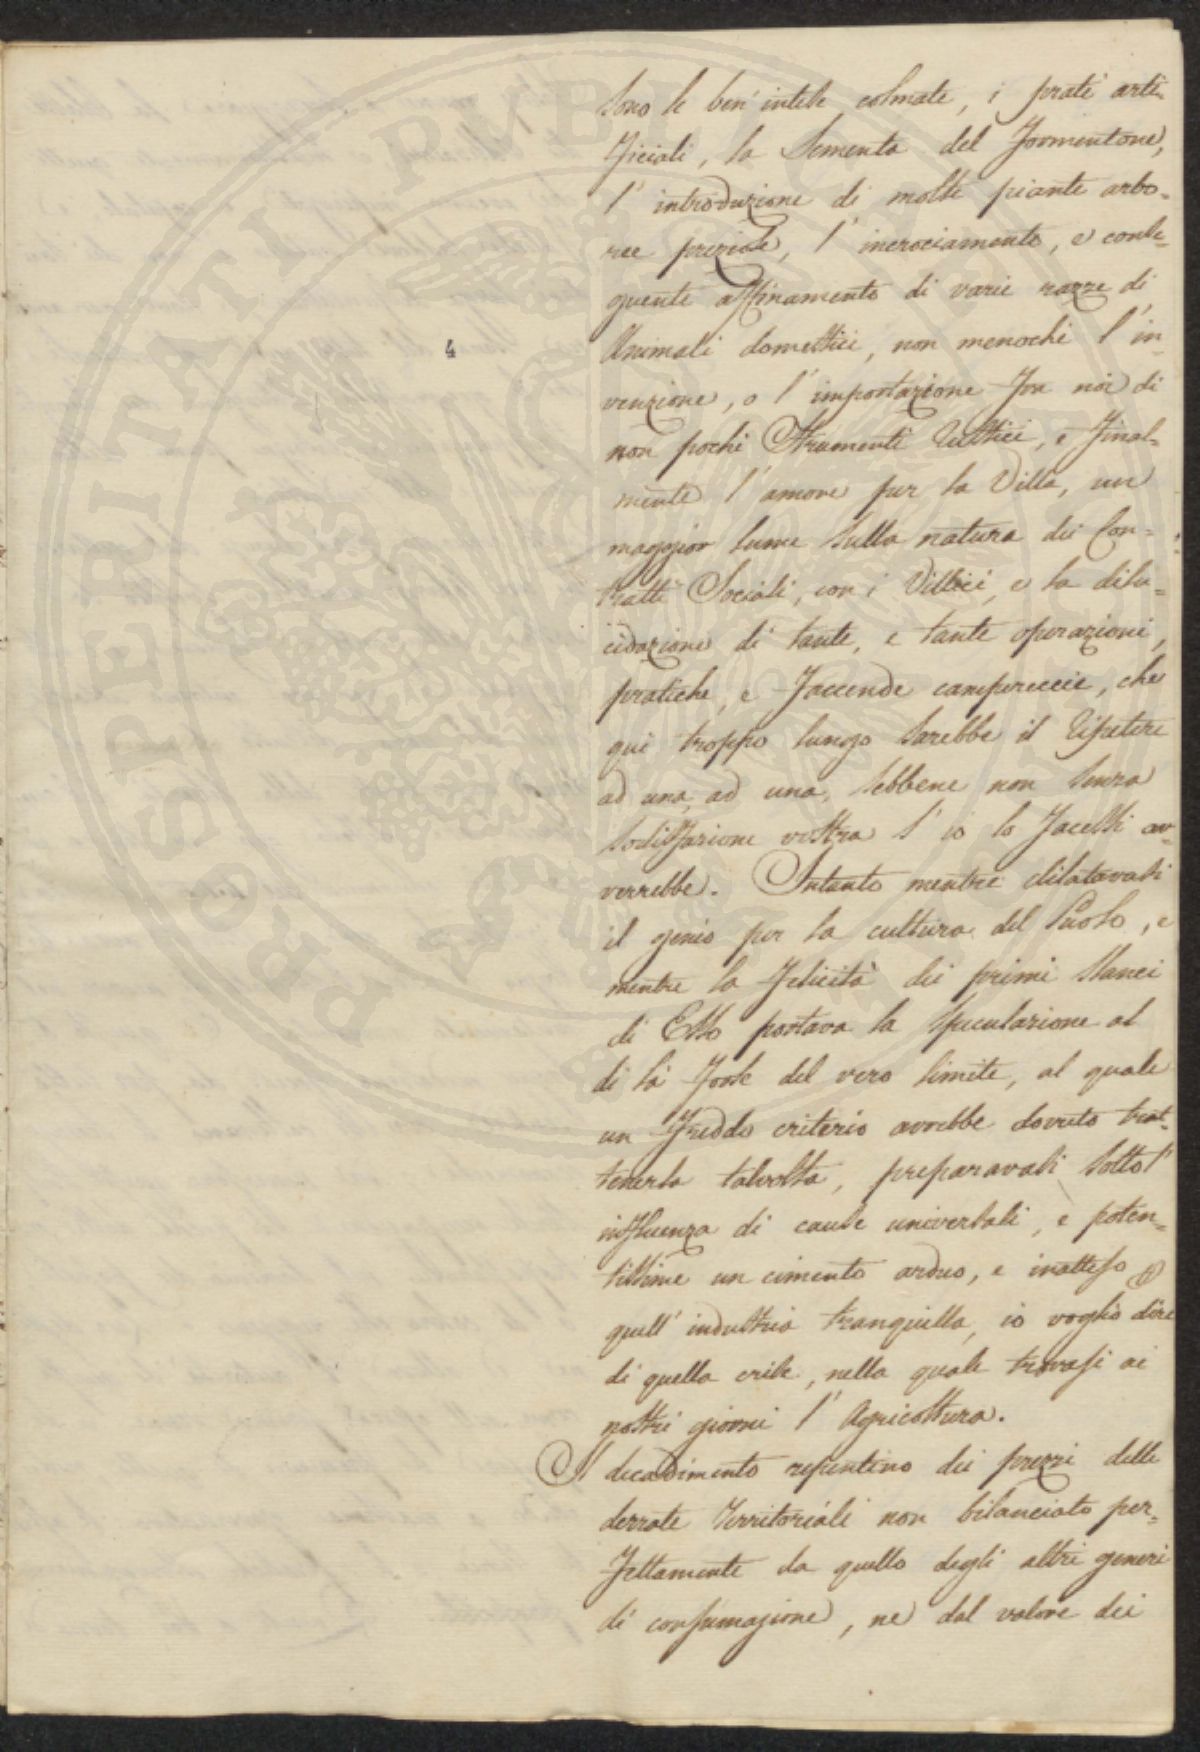 PROSPERITATI PUBLICAE
4
sono le ben'intese colmate, i prati arti-
ficiali, la sementa del Formentone,
l'introduzione di molte piante arbo-
ree preziose, l'incrociamento, e conse-
guente affinamento di varie razze di
Animali domestici, non menochè l'in-
venzione, o l'importazione fra noi di
non pochi Strumenti Rustici, e final-
mente l'amore per la Villa, un
maggior lume sulla natura dei Con-
tratti Sociali, con i Villici, e la dilu-
cidazione di tante, e tante operazioni
pratiche, e faccende campereccie, che
qui troppo lungo sarebbe il ripetere
ad una, ad una, sebbene non senza
sodisfazione vostra s'io lo facessi av-
verrebbe. Intanto mentre dilatavasi
il genio per la cultura del suolo, e
mentre la felicità dei primi slanci
di Esso portava la speculazione al
di là forse del vero limite, al quale
un freddo criterio avrebbe dovuto trat-
tenerla talvolta, preparavasi sotto l'
influenza di cause universali, e poten-
tissime un cimento arduo, e inatteso a
quell'industria tranquilla, io voglio dire
di quella crise, nella quale trovasi ai
nostri giorni l'Agricoltura.
Il decadimento repentino dei prezzi delle
derrate territoriali non bilanciato per-
fettamente da quello degli altri generi
di consumazione, ne dal valore dei